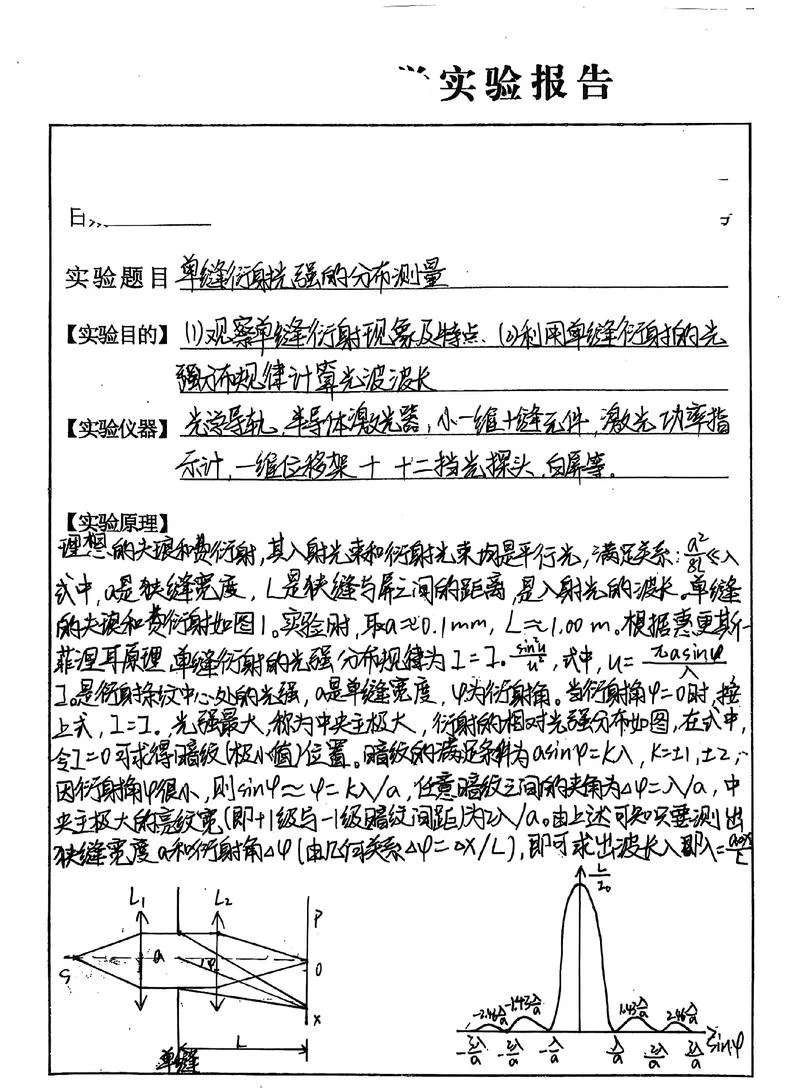 实验报告
实验题目 单缝衍射光强的分布测量
【实验目的】 (1)观察单缝衍射现象及特点. (2)利用单缝衍射的光
强分布规律计算光波波长
【实验仪器】 光学导轨,半导体激光器,小一维十缝元件,激光功率指
示计,一维位移架十 十二挡光探头,白屏等。
【实验原理】
理想的夫琅和费衍射,其入射光束和衍射光束均是平行光,满足关系: a²/8L ≪ λ
式中,a是狭缝宽度, L是狭缝与屏之间的距离,是入射光的波长。单缝
的夫琅和费衍射如图1。实验时,取a≈0.1mm, L≈1.00 m。根据惠更斯-
菲涅耳原理,单缝衍射的光强分布规律为 I=I₀ sin²u/u²,式中, u= πasinφ/λ
I₀是衍射条纹中心处的光强, a是单缝宽度, φ为衍射角。当衍射角φ=0时,按
上式, I=I。光强最大,称为中央主极大,衍射的相对光强分布如图,在式中,
令I=0可求得暗纹(极小值)位置。暗纹的满足条件为asinφ=kλ, K=±1,±2,
因衍射角φ很小,则sinφ≈φ=kλ/a,任意暗纹之间的夹角为Δφ=λ/a,中
央主极大的亮纹宽(即+1级与-1级暗纹间距)为2λ/a。由上述可知只要测出
狭缝宽度a和衍射角Δφ(由几何关系Δφ=Δx/L),即可求出波长λ即λ=aΔx/L
L₁ L₂ P
S a φ O
X
L
单缝
I/I₀
-2.46λ/a -1.43λ/a 1.43λ/a 2.46λ/a
-3λ/a -2λ/a -λ/a λ/a 2λ/a 3λ/a sinφ